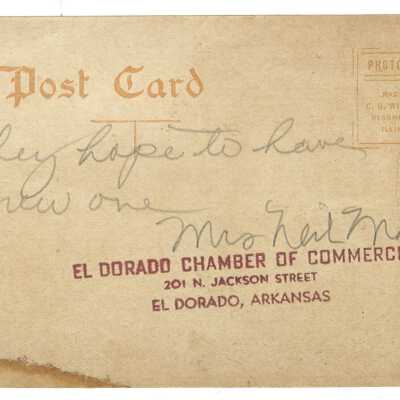 Post Card
PHOTO
hey hope to have
new one
Mrs Neil
EL DORADO CHAMBER OF COMMERCE
201 N. JACKSON STREET
EL DORADO, ARKANSAS